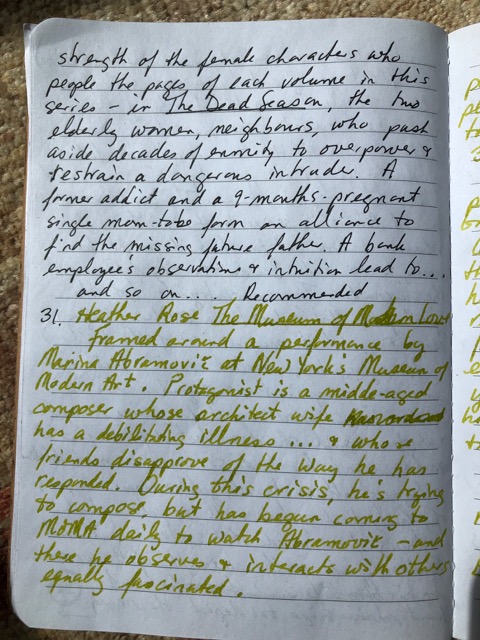 strength of the female characters who
people the pages of each volume in this
series – in The Dead Season, the two
elderly women, neighbours, who push
aside decades of enmity to overpower &
restrain a dangerous intruder. A
former addict and a 9-months-pregnant
single mom-to be form an alliance to
find the missing future father. A bank
employee's observations & intuition lead to...
and so on.... Recommended
31. Heather Rose The Museum of Modern Love
Framed around a performance by
Marina Abramovič at New York's Museum of
Modern Art. Protagonist is a midde-aged
composer whose architect wife
has a debilitating illness ... & whose
friends disapprove of the way he has
responded. During this crisis, he's trying
to compose, but has begun coming to
MOMA daily to watch Abramovič – and
there he observes & interacts with others
equally fascinated.